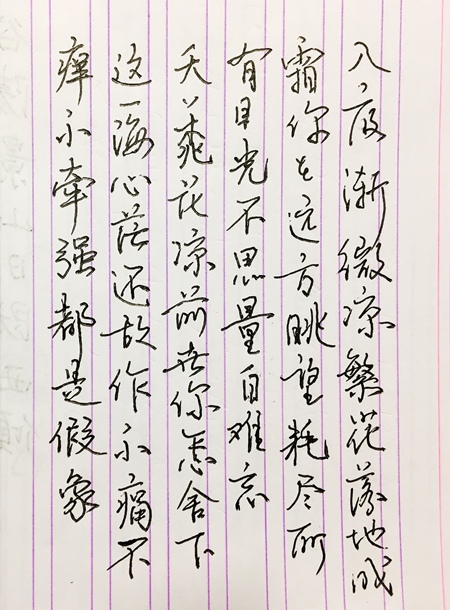 入夜渐微凉繁花落地成
霜你在远方眺望耗尽所
有目光不思量自难忘
夭〻桃花凉前世你怎舍下
这一海心茫还故作不痛不
痒不牵强都是假象